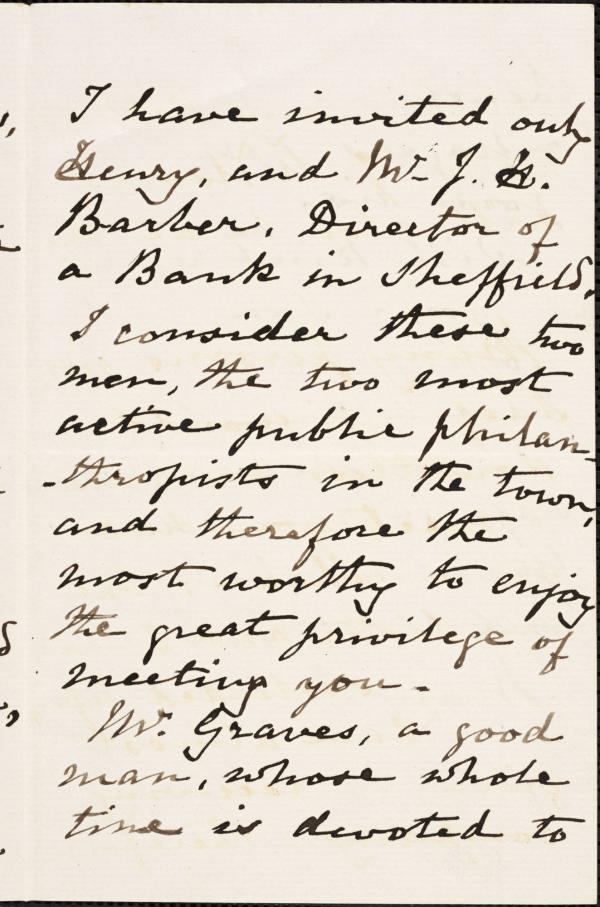 I have invited only
Henry, and Mr. J. H.
Barber, Director of
a Bank in Sheffield.
I consider these two
men, the two most
active public philan-
-thropists in the town,
and therefore the
most worthy to enjoy
the great privilege of
meeting you.
Mr. Graves, a good
man, whose whole
time is devoted to